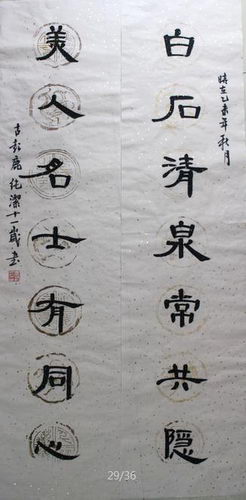 時在乙未年秋月
白石清泉常共隱
美人名士有同心
古彭鹿純潔十一歲書
29/36